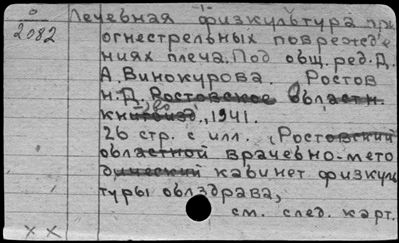 о
2082
Лечебная физкультура при
огнестрельных поврежде
ниях плеча. Под общ. ред. Д.
А. Винокурова. Ростов
н-Д, Ростовское областн.
книгоизд., 1941.
26 стр. с илл. (Ростовский
областной врачебно-мето
дический кабинет физкуль
туры облздрава,
см. след. карт.
х х